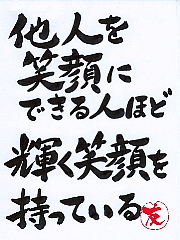 他人を
笑顔に
できる人ほど
輝く笑顔を
持っている
友